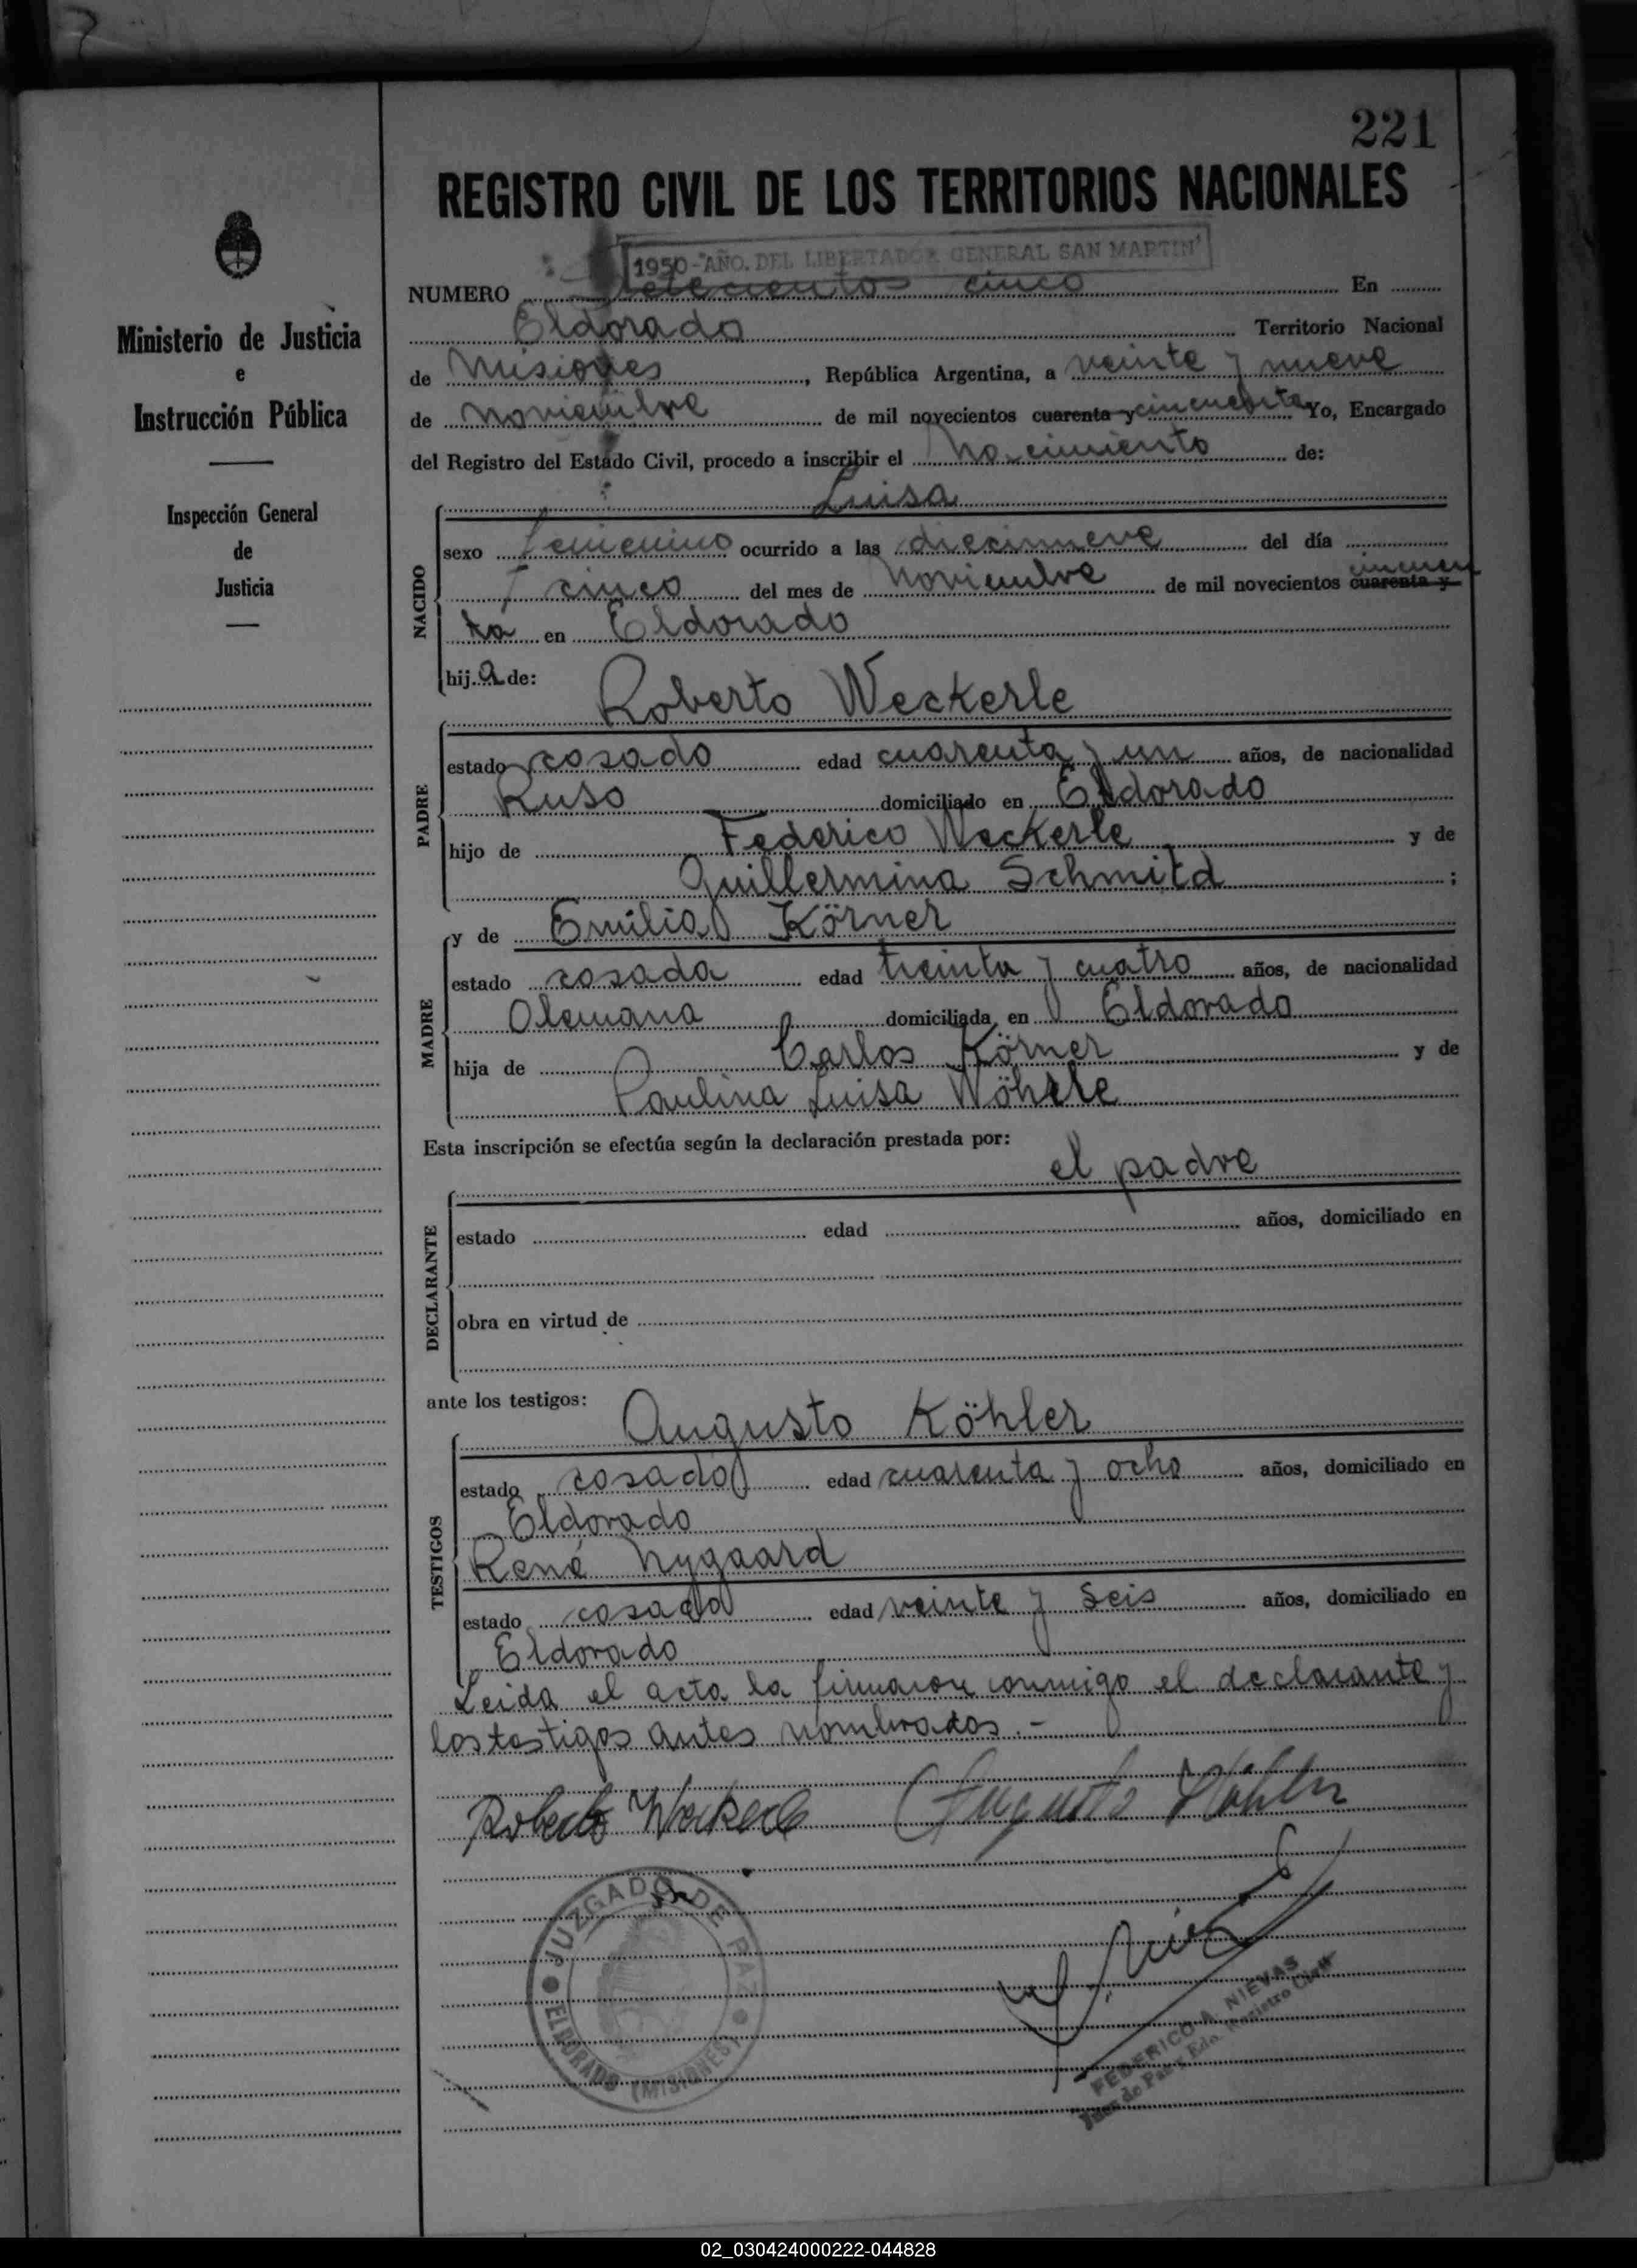 221
REGISTRO CIVIL DE LOS TERRITORIOS NACIONALES
1950-"AÑO. DEL LIBERTADOR GENERAL SAN MARTIN"
Ministerio de Justicia
e
Instrucción Pública
Inspección General
de
Justicia
NUMERO setecientos cinco En
Eldorado Territorio Nacional
de Misiones, República Argentina, a veinte y nueve
de noviembre de mil novecientos cuarenta y cincuenta Yo, Encargado
del Registro del Estado Civil, procedo a inscribir el nacimiento de:
Luisa
NACIDO
sexo femenino ocurrido a las diecinueve del día
cinco del mes de noviembre de mil novecientos cuarenta y cincuen
ta en Eldorado
hija de:
Roberto Weckerle
PADRE
estado casado edad cuarenta y un años, de nacionalidad
Ruso domiciliado en Eldorado
hijo de Federico Weckerle y de
Guillermina Schmitd ;
MADRE
y de Emilia Körner
estado casada edad treinta y cuatro años, de nacionalidad
Alemana domiciliada en Eldorado
hija de Carlos Körner y de
Paulina Luisa Wöhrle
Esta inscripción se efectúa según la declaración prestada por:
el padre
DECLARANTE
estado edad años, domiciliado en
obra en virtud de
ante los testigos:
Augusto Köhler
TESTIGOS
estado casado edad cuarenta y ocho años, domiciliado en
Eldorado
René Nygaard
estado casado edad veinte y seis años, domiciliado en
Eldorado
Leida el acta la firmaron conmigo el declarante y
los testigos antes nombrados.-
Roberto Weckerle Augusto Köhler
JUZGADO DE PAZ
ELDORADO (MISIONES)
FEDERICO A. NIEVAS
Juez de Paz y Edo. Registro Civil
02_030424000222-044828